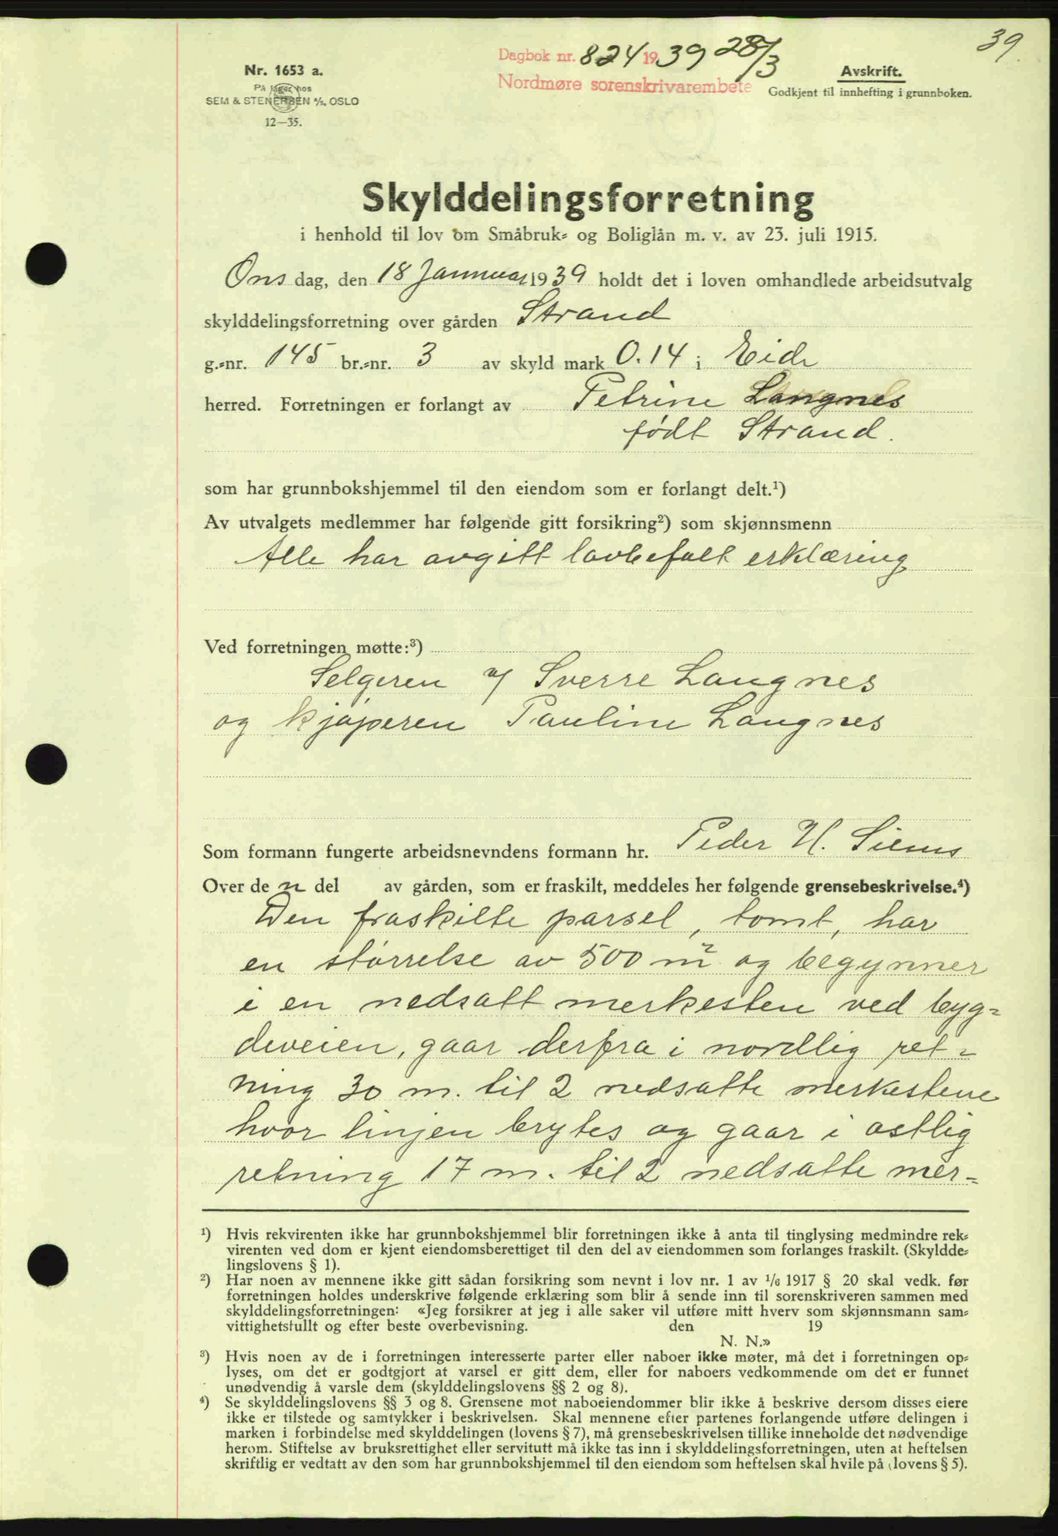 39.
Dagbok nr. 824 1939 28/3
Nordmøre sorenskrivarembete
Nr. 1653 a.
På lager hos
SEM & STENERSEN A/S, OSLO
12—35.
Avskrift.
Godkjent til innhefting i grunnboken.
Skylddelingsforretning
i henhold til lov om Småbruk- og Boliglån m. v. av 23. juli 1915.
Onsdag, den 18 Januar 1939 holdt det i loven omhandlede arbeidsutvalg
skylddelingsforretning over gården Strand
g.-nr. 145 br.-nr. 3 av skyld mark 0.14 i Eide
herred. Forretningen er forlangt av Petrine Langnes
født Strand.
som har grunnbokshjemmel til den eiendom som er forlangt delt.¹)
Av utvalgets medlemmer har følgende gitt forsikring²) som skjønnsmenn
Alle har avgitt lovbefalt erklæring
Ved forretningen møtte:³)
Selgeren v/ Sverre Langnes
og kjøperen Pauline Langnes
Som formann fungerte arbeidsnevndens formann hr. Peder H. Siems
Over den del av gården, som er fraskilt, meddeles her følgende grensebeskrivelse.⁴)
Den fraskilte parsel, tomt, har
en størrelse av 500 m² og begynner
i en nedsatt merkesten ved byg-
deveien, gaar derfra i nordlig ret-
ning 30 m. til 2 nedsatte merkestene
hvor linjen brytes og gaar i østlig
retning 17 m. til 2 nedsatte mer-
¹) Hvis rekvirenten ikke har grunnbokshjemmel blir forretningen ikke å anta til tinglysing medmindre rek-
virenten ved dom er kjent eiendomsberettiget til den del av eiendommen som forlanges fraskilt. (Skyldde-
lingslovens § 1).
²) Har noen av mennene ikke gitt sådan forsikring som nevnt i lov nr. 1 av 1/6 1917 § 20 skal vedk. før
forretningen holdes underskrive følgende erklæring som blir å sende inn til sorenskriveren sammen med
skylddelingsforretningen: «Jeg forsikrer at jeg i alle saker vil utføre mitt hverv som skjønnsmann sam-
vittighetsfullt og efter beste overbevisning. den 19
N. N.»
³) Hvis noen av de i forretningen interesserte parter eller naboer ikke møter, må det i forretningen op-
lyses, om det er godtgjort at varsel er gitt dem, eller for naboers vedkommende om det er funnet
unødvendig å varsle dem (skylddelingslovens §§ 2 og 8).
⁴) Se skylddelingslovens §§ 3 og 8. Grensene mot naboeiendommer blir ikke å beskrive dersom disses eiere
ikke er tilstede og samtykker i beskrivelsen. Skal mennene efter partenes forlangende utføre delingen i
marken i forbindelse med skylddelingen (lovens § 7), må grensebeskrivelsen tillike inneholde det nødvendige
herom. Stiftelse av bruksrettighet eller servitutt må ikke tas inn i skylddelingsforretningen, uten at heftelsen
skriftlig er vedtatt av den som har grunnbokshjemmel til den eiendom som heftelsen skal hvile på (lovens § 5).